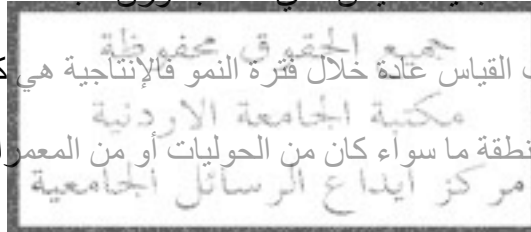 جميع الحقوق محفوظة
القياس عادة خلال فترة النمو فالإنتاجية هي
مكتبة الجامعة الاردنية
ما سواء كان من الحوليات أو من
مركز ايداع الرسائل الجامعية